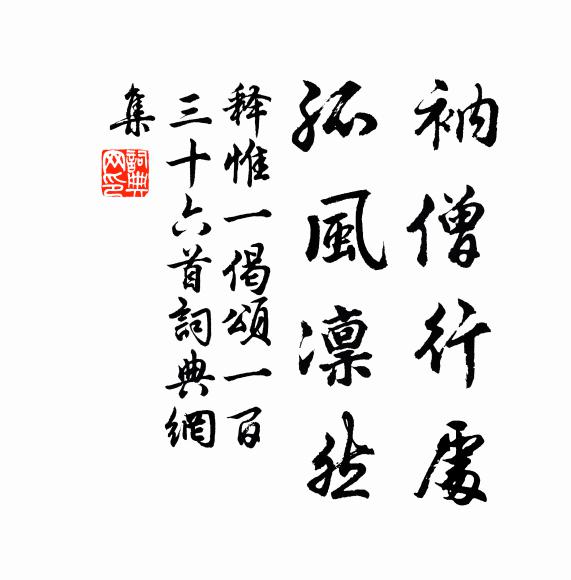 衲僧行處
孤風凛然
释惟一偈頌一百
三十六首詞典網
集
詞典
网印